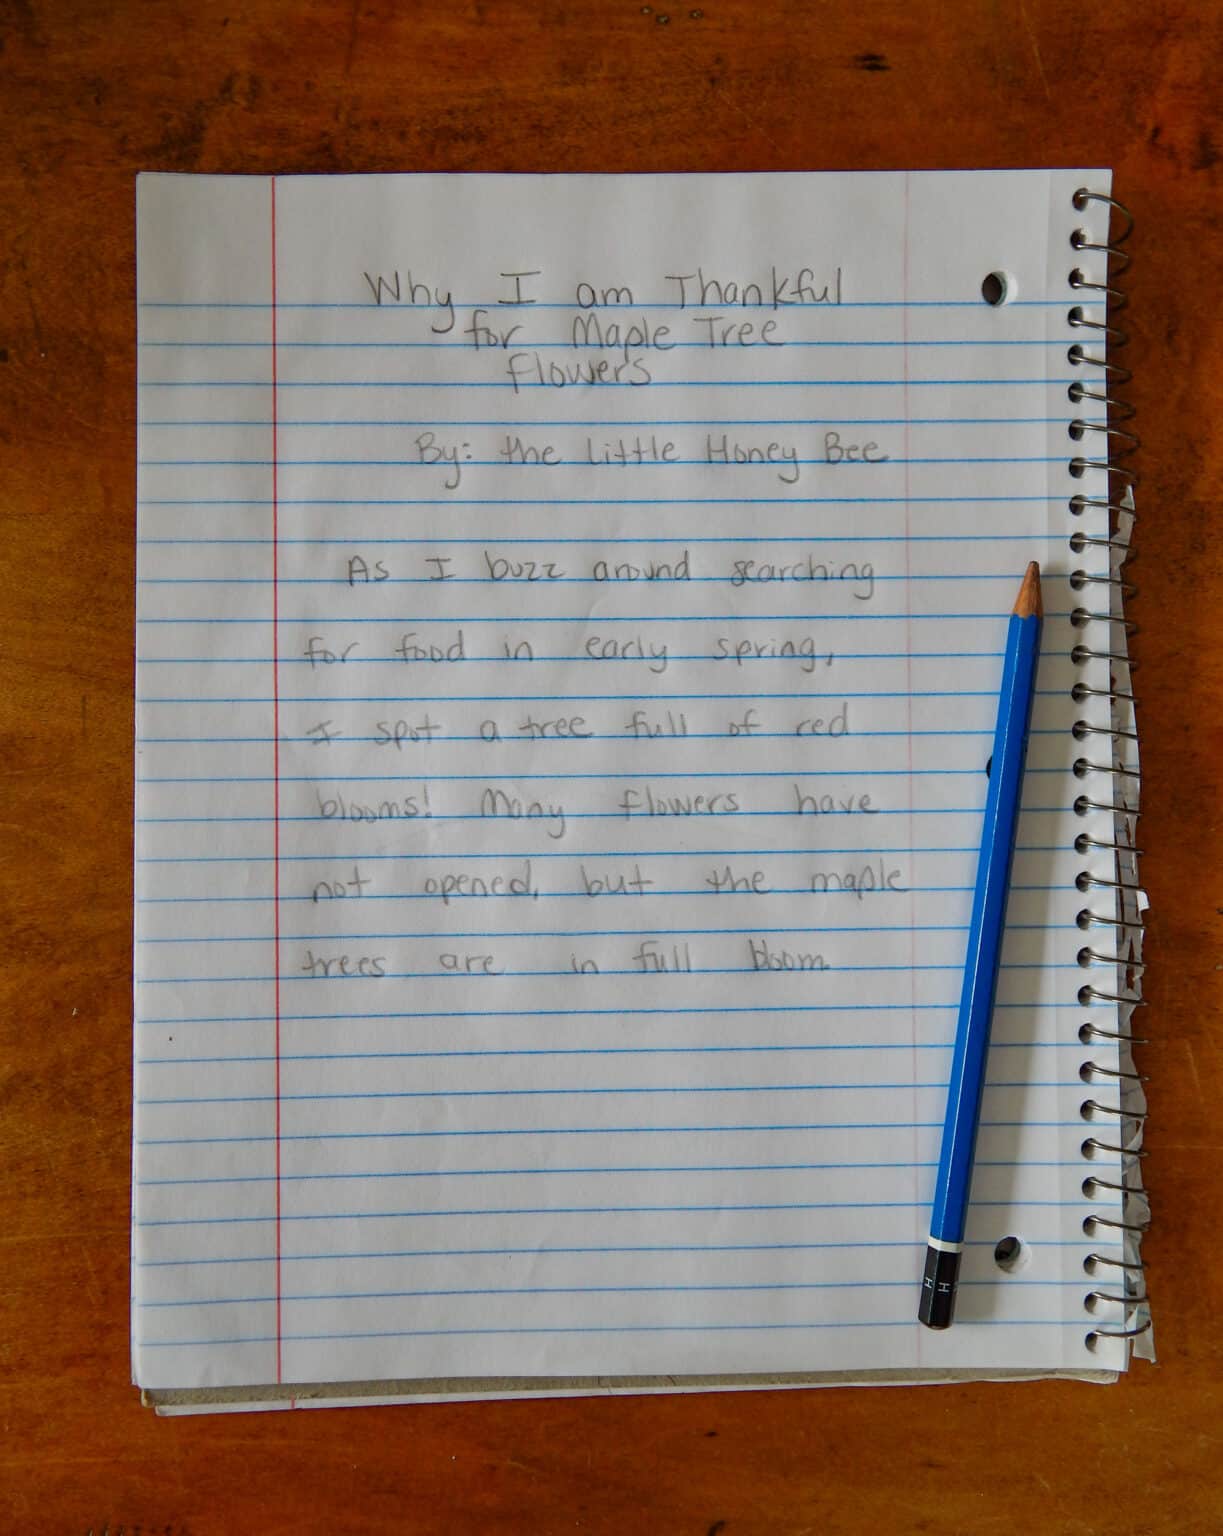 Why I am Thankful
for Maple Tree
flowers
By: the Little Honey Bee
As I buzz around searching
for food in early spring,
I spot a tree full of red
blooms! Many flowers have
not opened, but the maple
trees are in full bloom.
H H